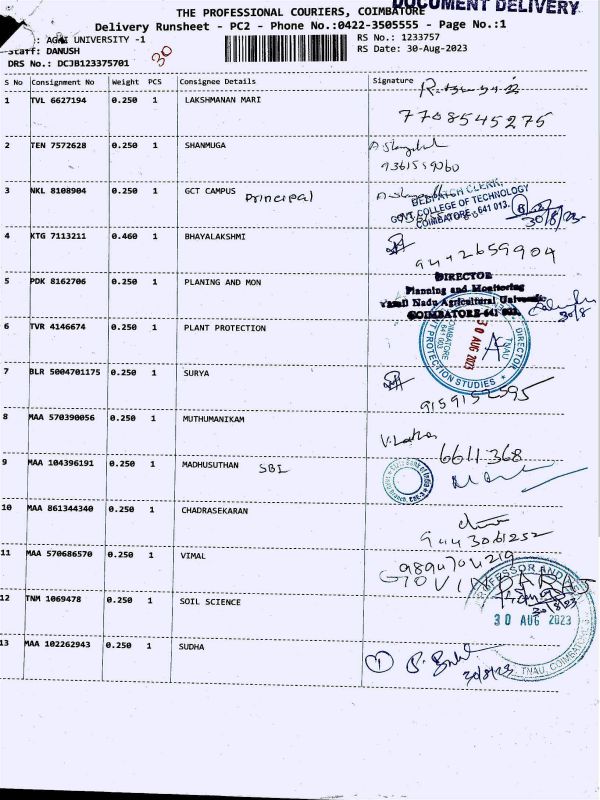 THE PROFESSIONAL COURIERS, COIMBATORE
DOCUMENT DELIVERY
Delivery Runsheet - PC2 - Phone No.:0422-3505555 - Page No.:1
: AGRI UNIVERSITY -1
RS No.: 1233757
Staff: DANUSH
30
RS Date: 30-Aug-2023
DRS No.: DCJB123375701
S No Consignment No Weight PCS Consignee Details Signature
1 TVL 6627194 0.250 1 LAKSHMANAN MARI
7708545275
2 TEN 7572628 0.250 1 SHANMUGA
3 NKL 8108904 0.250 1 GCT CAMPUS Principal
DESPATCH CLERK,
GOVT COLLEGE OF TECHNOLOGY
COIMBATORE - 641 013.
30/8/23
4 KTG 7113211 0.460 1 BHAYALAKSHMI
9442659904
5 PDK 8162706 0.250 1 PLANING AND MON
DIRECTOR
Planning and Monitoring
Tamil Nadu Agricultural University
COIMBATORE-641 003.
30/8
6 TVR 4146674 0.250 1 PLANT PROTECTION
DIRECTOR
PLANT PROTECTION STUDIES
TNAU
COIMBATORE
641 003
30 AUG 2023
7 BLR 5004701175 0.250 1 SURYA
9159152595
8 MAA 570390056 0.250 1 MUTHUMANIKAM
6611368
9 MAA 104396191 0.250 1 MADHUSUTHAN SBI
State Bank of India
10 MAA 861344340 0.250 1 CHADRASEKARAN
9443061252
11 MAA 570686570 0.250 1 VIMAL
9894704219
GOVINDARAJ
12 TNM 1069478 0.250 1 SOIL SCIENCE
PROFESSOR AND
30/8/23
30 AUG 2023
TNAU, COIMBATORE
13 MAA 102262943 0.250 1 SUDHA
1
30/8/23